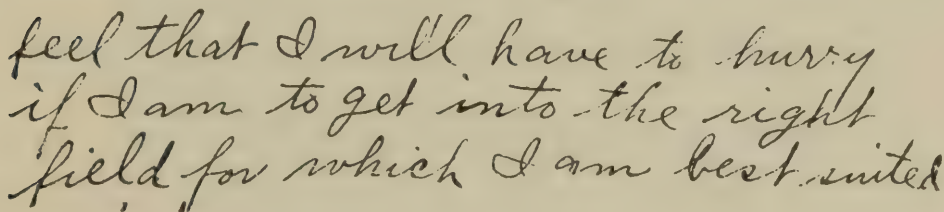 feel that I will have to hurry
if I am to get into the right
field for which I am best suited